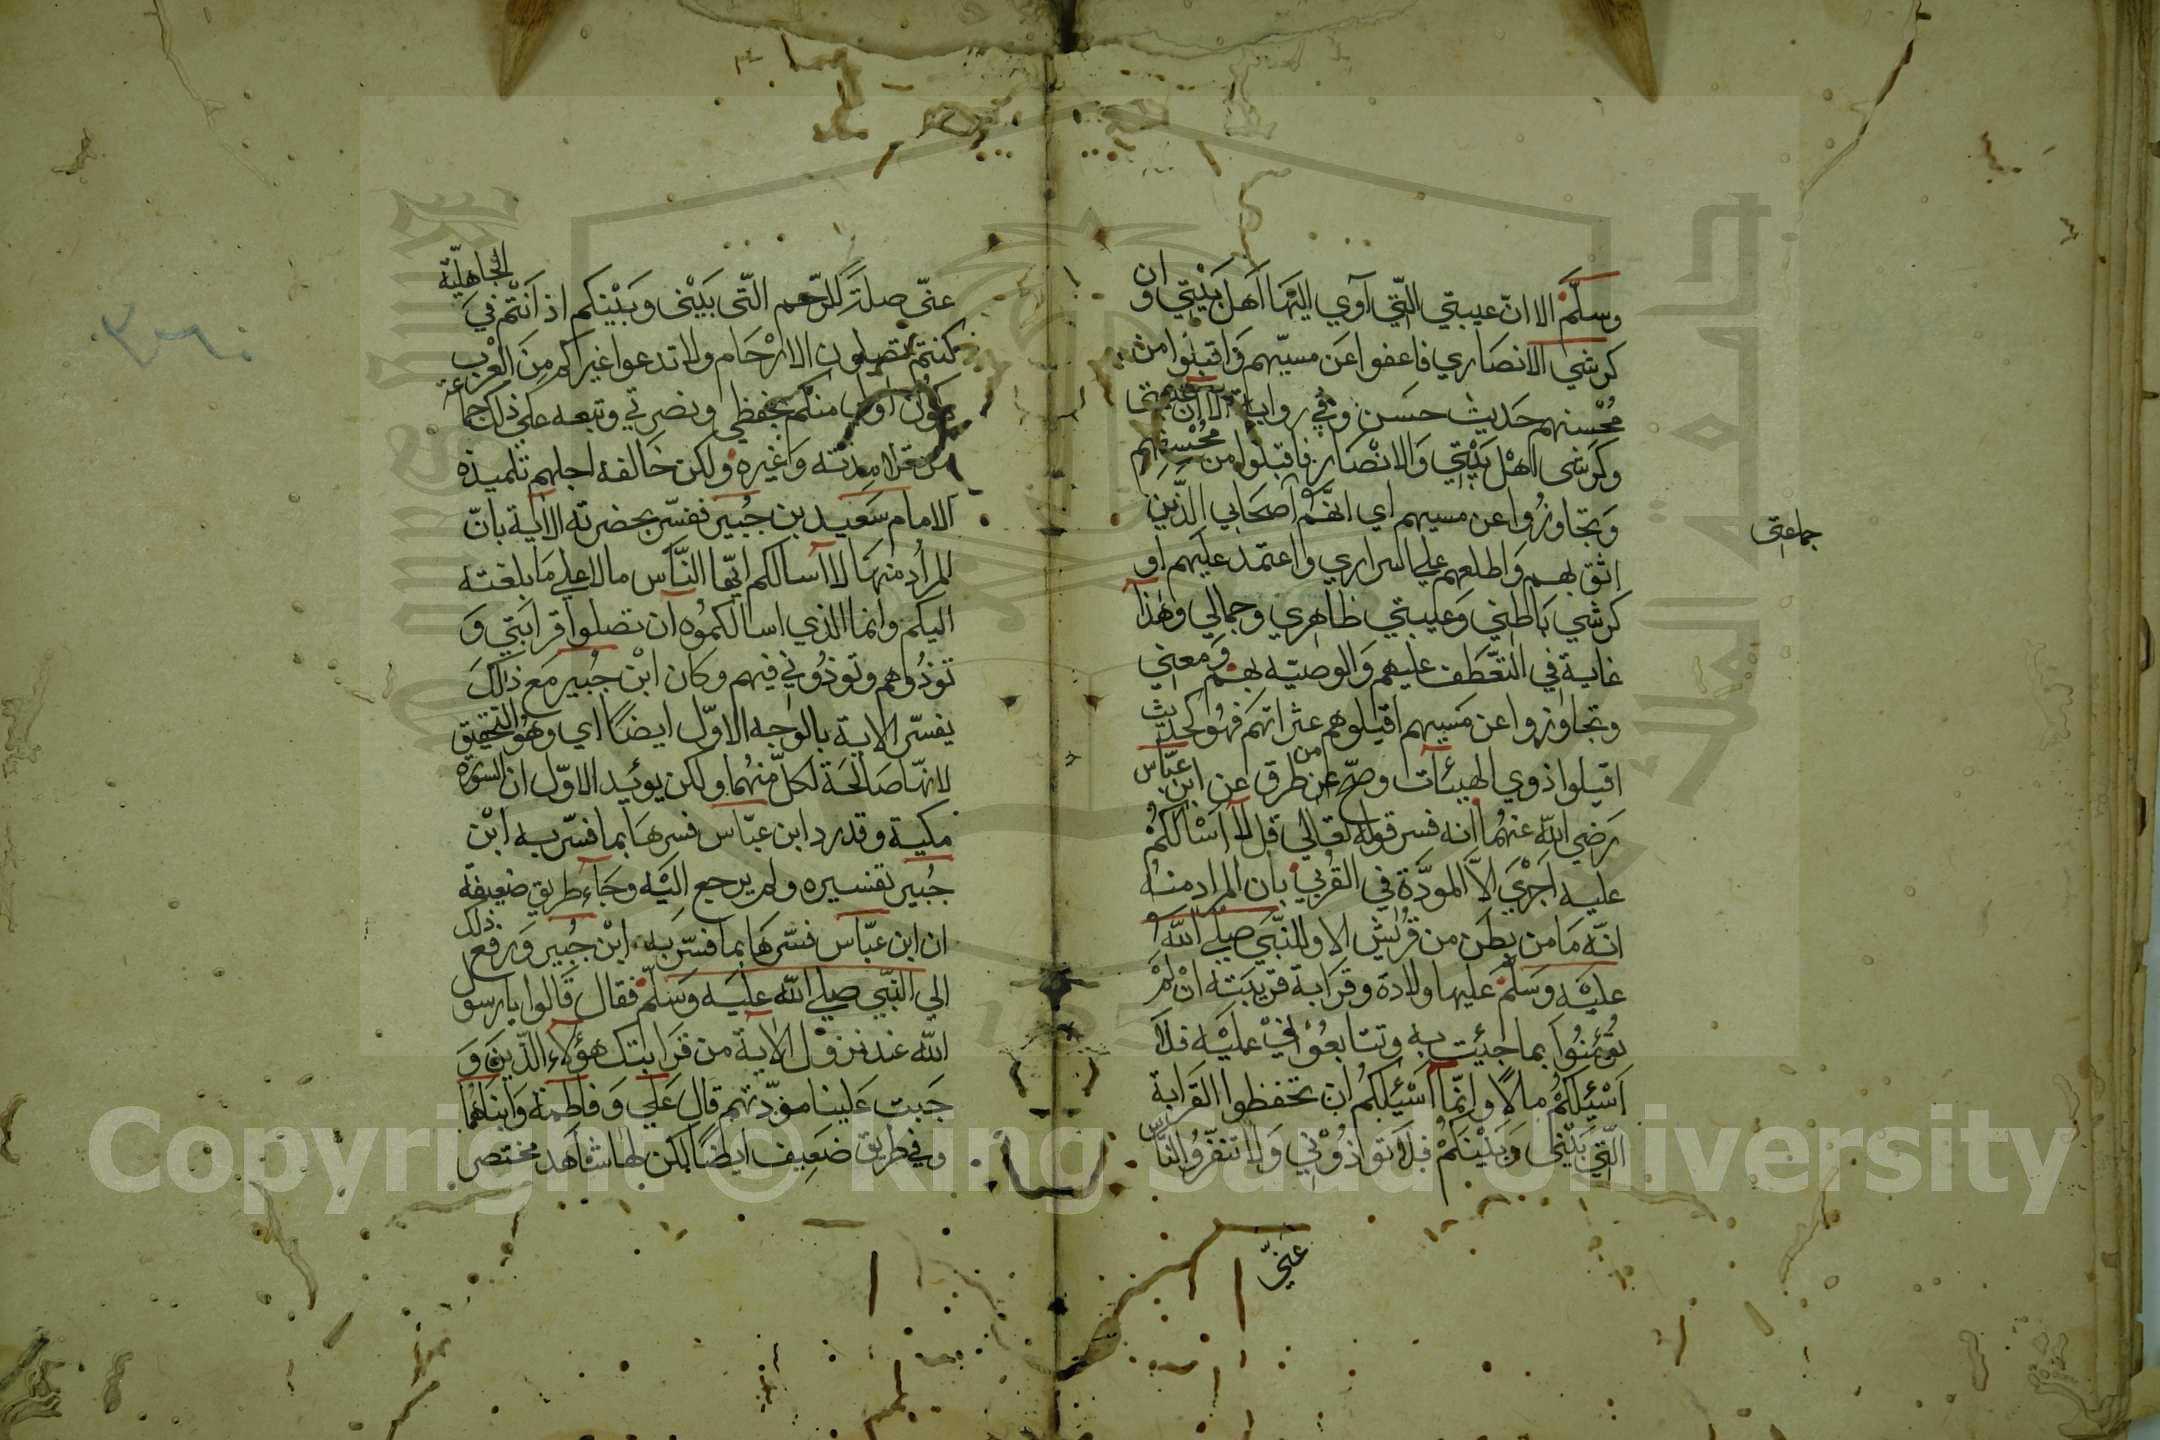 وسلّم الا انّ عيبتي الّتي آوي اليْهَا اَهل بَيْتِي وان
كرشي الانصَاري فاعفوا عَن مسيّهم وَاقبلُوا من
مُحْسنهم حَديث حسَن وفي رواية الا ان عيبتى
وكَرشى اهْل بَيْتِي وَالانْصَار فاقبلوا من مُحْسنهم
وَتجاوزُوا عن مسيهم اي انّهُم اَصحَابي الّذين
اثق بهم وَاطلعهم علي اسراري واعتمد عليهم او
كرشي بَاطني وَعيبتي ظاهري وجمالي وهٰذا
غاية في التعَّطف عليهم وَالوصيّه بهم وَمعني
وتجاوزوا عن مَسيهم اقيلوهم عثراتهَم فهُو كحديث
اقيلوا ذوي الهيئآت وصحّ عن من طرق عن ابن عبّاس
رَضي اللّه عنهُما انه فسر قوله تعَالي قل لا اَسْاَلكمُ
عليه اَجْريَ الاّ المودَّة في القُربيٰ بان المراد منهُ
انّه مَا من بطَن من قُريش الا وللنبّي صلي اللّه
عليْه وَسَلّمَ عليها ولادة وقرَابة قريبَته انْ لمْ
تُؤمنُوا بما جئت به وتتابعُوني عليْه فلاَ
اَسْئِلكُمْ مالاً وانّما اَسْئِلكمُ ان تحَفظوا القَرابة
الّتي بَيْنى وَبَيْنكمُْ فلاَ تواذُوْني وَلا تنفّروُا النَّاس
عَنّي
جماعتى
عنّي صلةً للرّحم الّتى بَيْنى وبَيْنكم اذ اَنتمُْ في الجاهليّة
كنتم تصلون الارْحَام ولا تدعوا غيركم مِنَ العرْب
يكُون اولي منكم بحفظي ونصرتي وتبعه علي ذلك جماعة
من تلامذته وَغيره ولكن خَالفه اجلهم تلميذه
الامام سَعيد بن جُبَير ففسّر بحضرته الاية بانّ
المرُاد منهَا لا اَسالكم ايّها النَّاس مالا علي مَا بلغته
اليكم وانما الذي اسالكموُه ان تصلوا قرابَتي وَ
توذُوهم وتوذُوني فيهم وكان ابْن جُبير مَع ذالكَ
يفسّر الاية بالوَجه الاوّل ايضًا اي وهُوَ التحقيق
لانهّا صَالحَة لكلّ منهُما ولكن يوئيد الاوّل ان السّورة
مكية وقد رد ابن عبّاس فسرهَا بما فسّر به ابْن
جُبير تفسيره ولم يرجع اليَه وجَاءَ طريق ضَعيفة
ان ابن عبّاس فسّرهَا بما فسّر به ابْن جُبير وَرفع ذلك
الي النَّبّي صلي اللّه عليَه وَسَلّم فقال قَالوا يارسول
اللّه عند نزوْل الاية من قَرابتك هؤلاء الّذيَن وَ
جَبت عَلينا موّدتهم قال عَلي وَفاطمة وَابناهما
وفي طريق ضَعيف ايضًا لكن لها شاهَد مختصر
Copyright © King Saud University